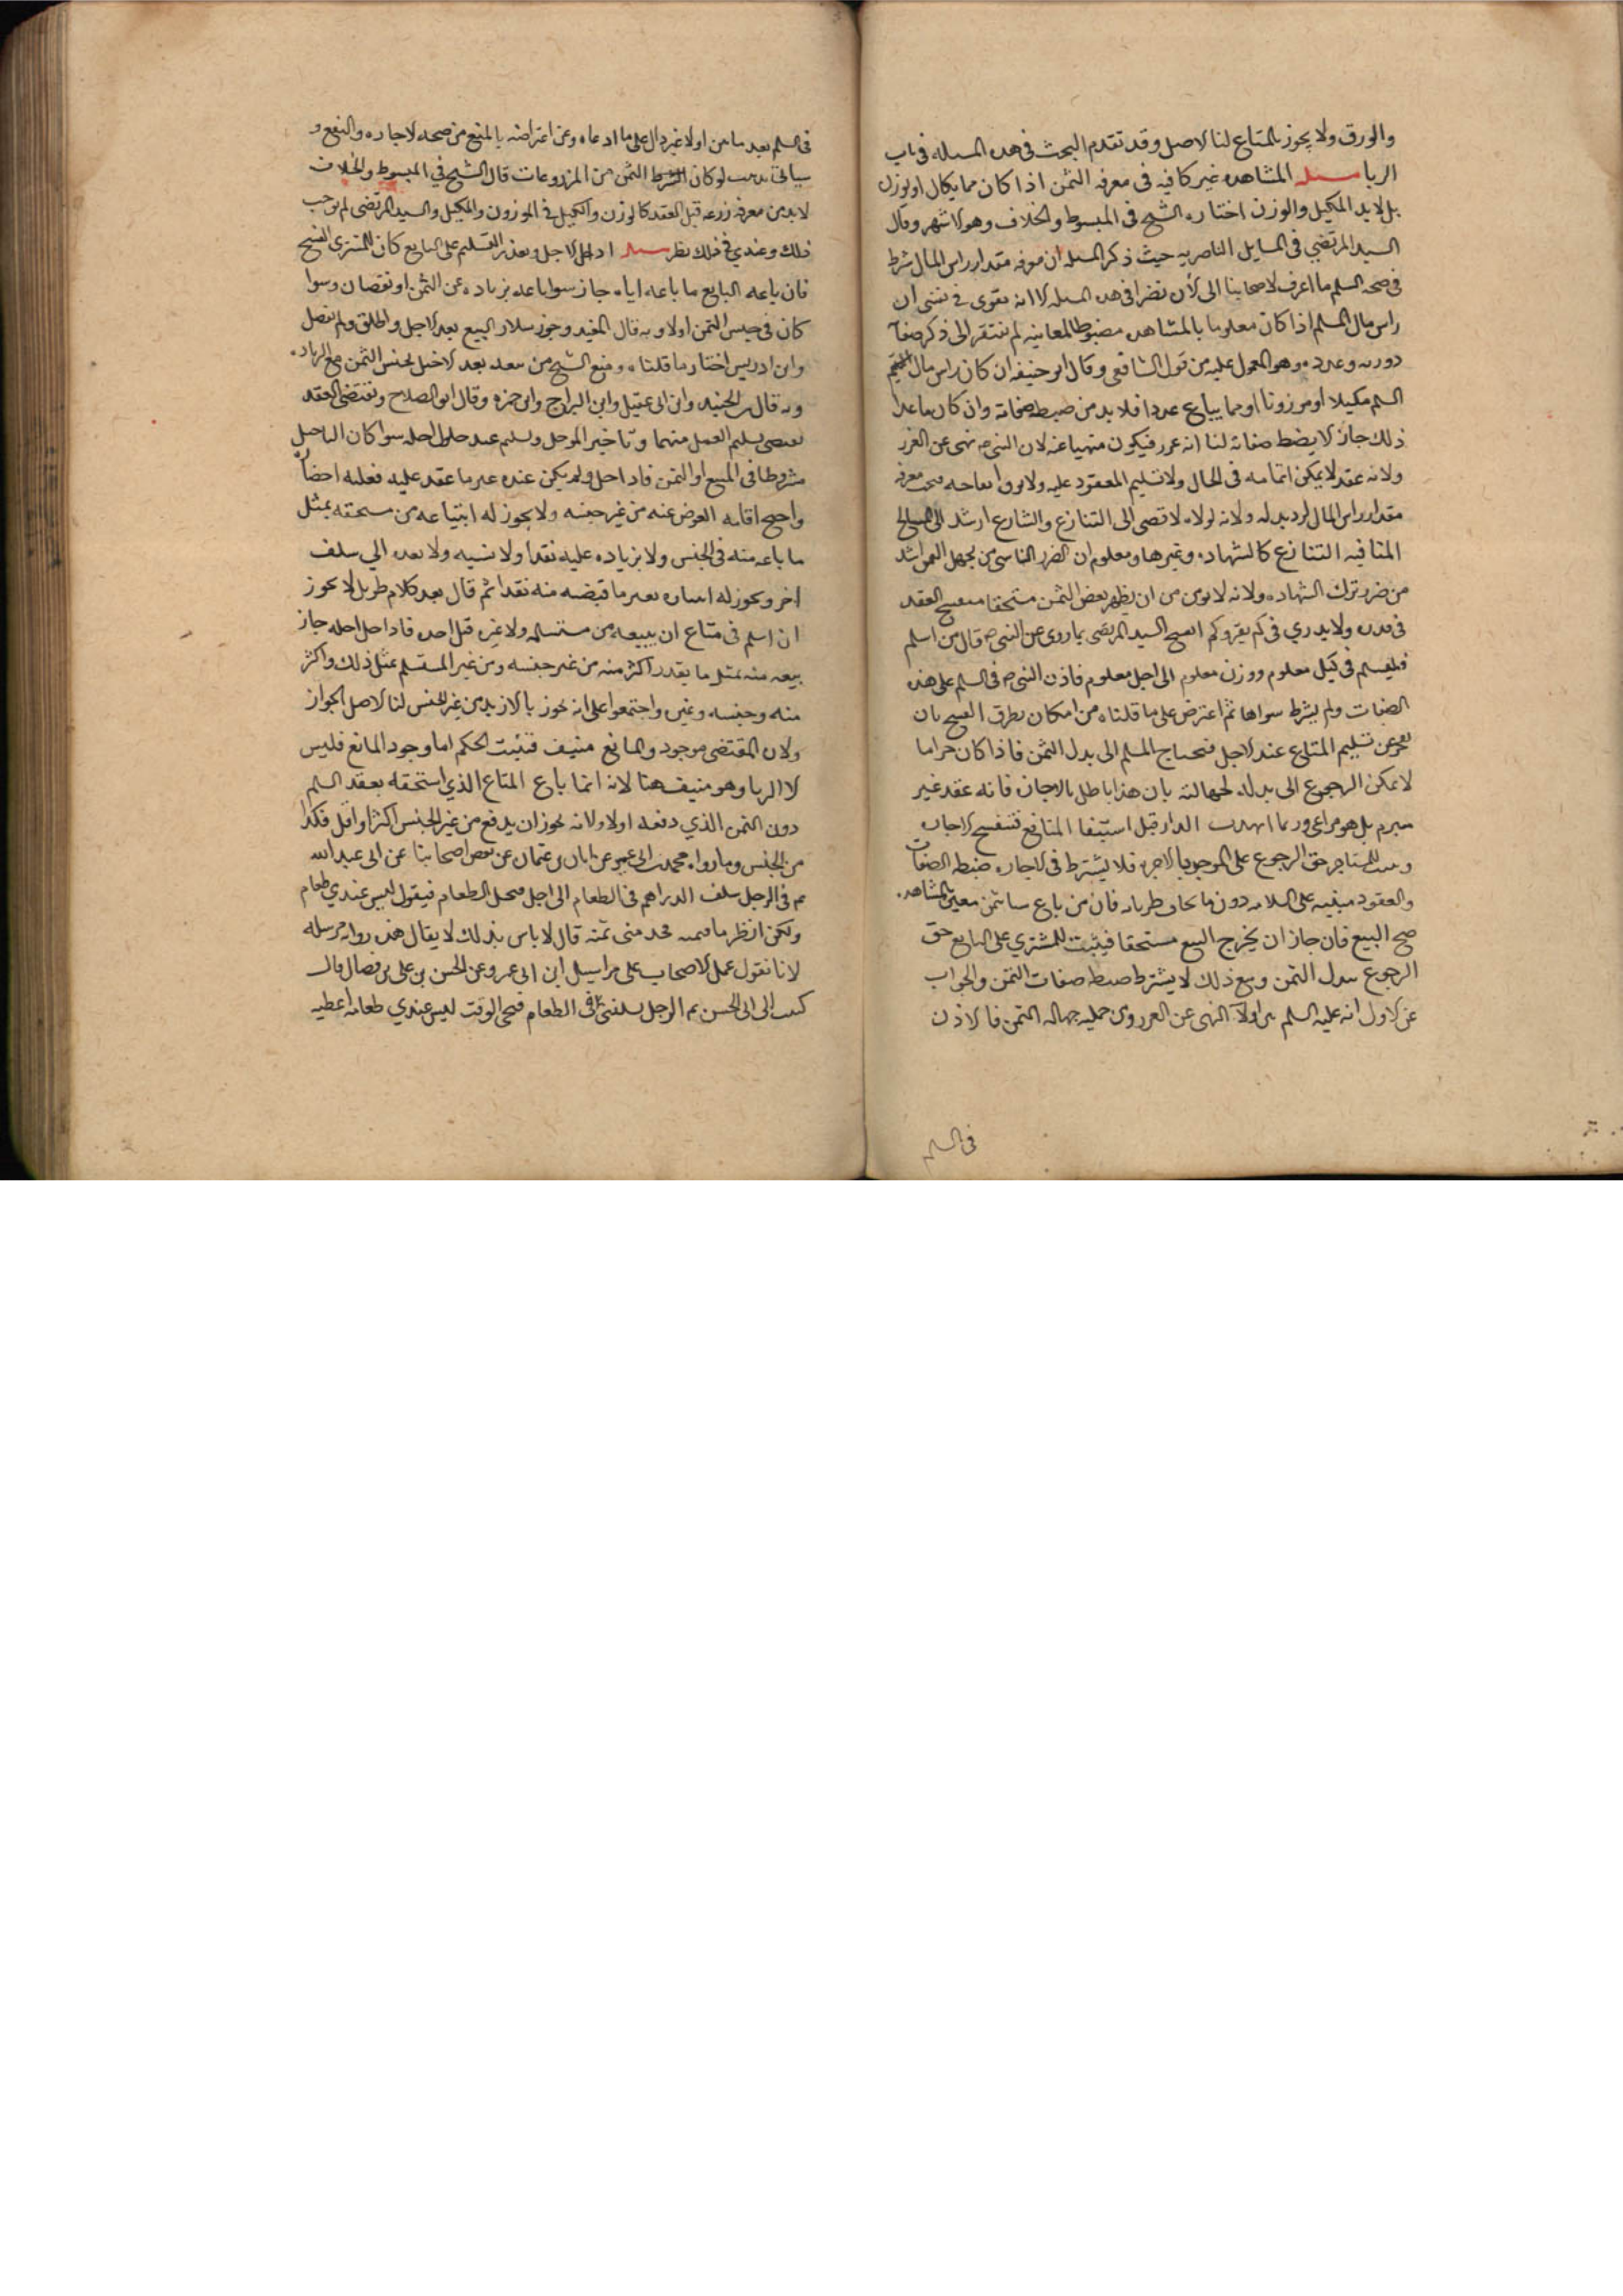 والورق ولا يجوز بالمتاع لنا الاصل وقد تقدم البحث في هذه المسله في باب
الربا مسله المشاهده غير كافيه في معرفه الثمن اذا كان مما يكال او يوزن
بل لابد المكيل والوزن اختاره الشيخ في المبسوط والخلاف وهو الاشهر وقال
السيد المرتضي في المسايل الناصريه حيث ذكر المسله ان معرفه مقدار راس المال شرط
في صحه السلم ما اعرف لاصحابنا الى الان نضرا في هذه المسله الا انه يقوى في نفسي ان
راس مال السلم اذا كان معلوما بالمشاهده مضبوطا لمعاينه لم يفتقر الى ذكر صفا
وعدده وهو المعول عليه من قول الشافعي وقال ابو حنيفه ان كان راس مال
السلم مكيلا او موزونا او مما يباع عددا فلا بد من ضبط صفاته وان كان ما عدا
ذلك جاز لا يضبط صفاته لنا انه غرر فيكون منهيا عنه لان النبي ص نهى عن الغرر
ولانه عقد لا يمكن اتمامه في الحال ولا تسليم المعقود عليه ولا معرفه
مقدار راس المال لرد بدله ولانه لولاه لافضى الى التنازع والشارع ارشد الى المصالح
المنافيه التنازع كالشهاده وغيرها ومعلوم ان الضرر الناشي من بجهل الثمن اشد
من ضرر ترك الشهاده ولانه لا يومن من ان يظهر بعض الثمن مستحقا فينفسخ العقد
في قدره ولا يدري في كم بقي وكم انفسخ السيد المرتضى بما روى عن النبي ص قال من اسلم
فليسلم في كيل معلوم ووزن معلوم الى اجل معلوم فاذن النبي ص في السلم على هذه
الصفات ولم يشرط سواها ثم اعترض على ما قلناه من امكان تطرق الفسخ بان
يعجز عن تسليم المتاع عند الاجل فيحتاج المسلم الى بدل الثمن فاذا كان حراما
لا يمكن الرجوع الى بدله لجهالته بان هذا باطل بالاجاره فانه عقد غير
مبرم بل هو مراعى وربما انهدمت الدار قبل استيفا المنافع فتنفسخ الاجاره
للمستاجر حق الرجوع على الموجر بالاجره فلا يشترط في الاجاره ضبط الصفات
والعقود مبنيه على السلامه دون ما يخاف طريانه فان من باع شيا بثمن معين بالمشاهده
صح البيع فان جاز ان يخرج البيع مستحقا فيثبت للمشتري على البايع حق
الرجوع ببدل الثمن ومع ذلك لا يشترط ضبط صفات الثمن والجواب
عن الاول انه عليه السلم بين اولا النهى عن الغرر ومن جملته جهاله الثمن فالاذن
في السلم
في السلم بعد ما من اولا غير دال على ما ادعاه وعن اعتراضه بالمنع من صحه الاجاره والبيع و
سياتي لو كان الثمن من المزروعات قال الشيخ في المبسوط والخلاف
لابد من معرفه زرعه قبل العقد كالوزن والكيل في الموزون والمكيل والسيد المرتضى لم يوجب
ذلك وعندي في ذلك نظر مسله اذا حل الاجل وتعذر التسليم على البايع كان للمشتري الفسخ
فان باعه البايع ما باعه اياه جاز سوا باعه بزياده عن الثمن او نقصان وسوا
كان في جنس الثمن اولا وبه قال المفيد وجوز سلار البيع بعد الاجل واطلق ولم يفصل
وابن ادريس اختار ما قلناه ومنع الشيخ من بيعه بعد الاجل بجنس الثمن مع الزياده
وبه قال بن الجنيد وابن ابي عقيل وابن البراج وابن حمزه وقال ابو الصلاح ويقتضي العقد
تسليم المعجل منهما وتاخير الموجل وتسليمه عند حلول اجله سوا كان التاجيل
مشروطا في المبيع او الثمن فاذا حل ولم يكن عنده غير ما عقد عليه فعليه احضا
واحتج اقامه العوض عنه من غير جنسه ولا يجوز له ابتياعه من مستحقه بمثل
ما باعه منه في الجنس ولا بزياده عليه نقدا ولا نسيه ولا نقده الي سلف
اخر ويجوز له ابتياعه بغير ما قبضه منه نقدا ثم قال بعد كلام طويل لا يجوز
ان اسلم في متاع ان يبيعه من مستسلمه ولا غيره قبل اجله فاذا حل اجله جاز
بيعه منه بمثل ما نقد واكثر منه من غير جنسه ومن غير المستسلم بمثل ذلك واكثر
منه وجنسه وغيره واجتمعوا على انه يجوز بالازيد من غير الجنس لنا الاصل الجواز
ولان المقتضى موجود والمانع منتف فثبت الحكم اما وجود المانع فليس
الا الربا وهو منتف هنا لانه انما باع المتاع الذي استحقه بعقد السلم
دون الثمن الذي دفعه اولا ولانه يجوز ان يدفع من غير الجنس اكثر او اقل فكذا
من الجنس وما رواه محمد بن ابي عمير عن ابان بن عثمان عن بعض اصحابنا عن ابي عبد الله
عم في الرجل سلف الدراهم في الطعام الى اجل فيحل الطعام فيقول ليس عندي طعام
ولكن انظر ما قيمته فخذ مني ثمنه قال لا باس بذلك لا يقال هذه روايه مرسله
لانا نقول عمل الاصحاب على مراسيل ابن ابي عمير وعن الحسن بن علي بن فضال قال
كتبت الى ابي الحسن عم الرجل يسلفني في الطعام فيجي الوقت ليس عندي طعام اعطيه